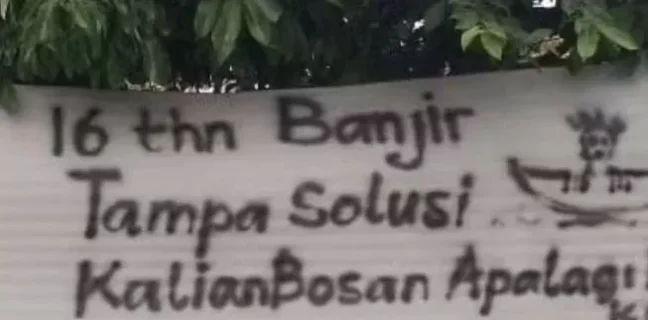 16 thn Banjir
Tampa Solusi..
Kalian Bosan Apalagi